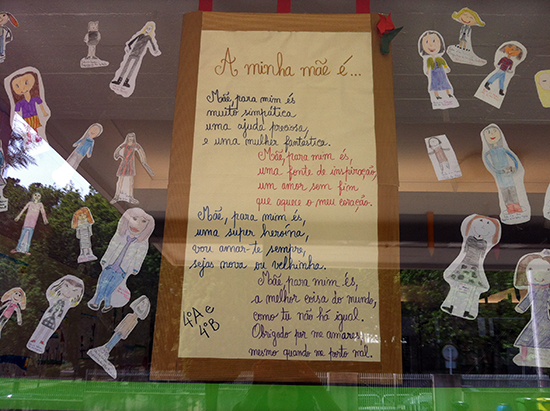 A minha mãe é...
Mãe, para mim és
muito simpática
uma ajuda preciosa,
e uma mulher fantástica.
Mãe, para mim és,
uma fonte de inspiração,
um amor sem fim
que aquece o meu coração.
Mãe, para mim és,
uma super heroína,
vou amar-te sempre,
sejas nova ou velhinha.
Mãe, para mim és,
a melhor coisa do mundo,
como tu não há igual.
Obrigado por me amares,
mesmo quando me porto mal.
4ºA e
4ºB